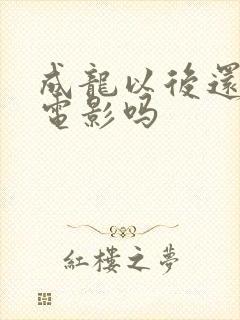 成龍以後還
電影吗
紅樓之夢